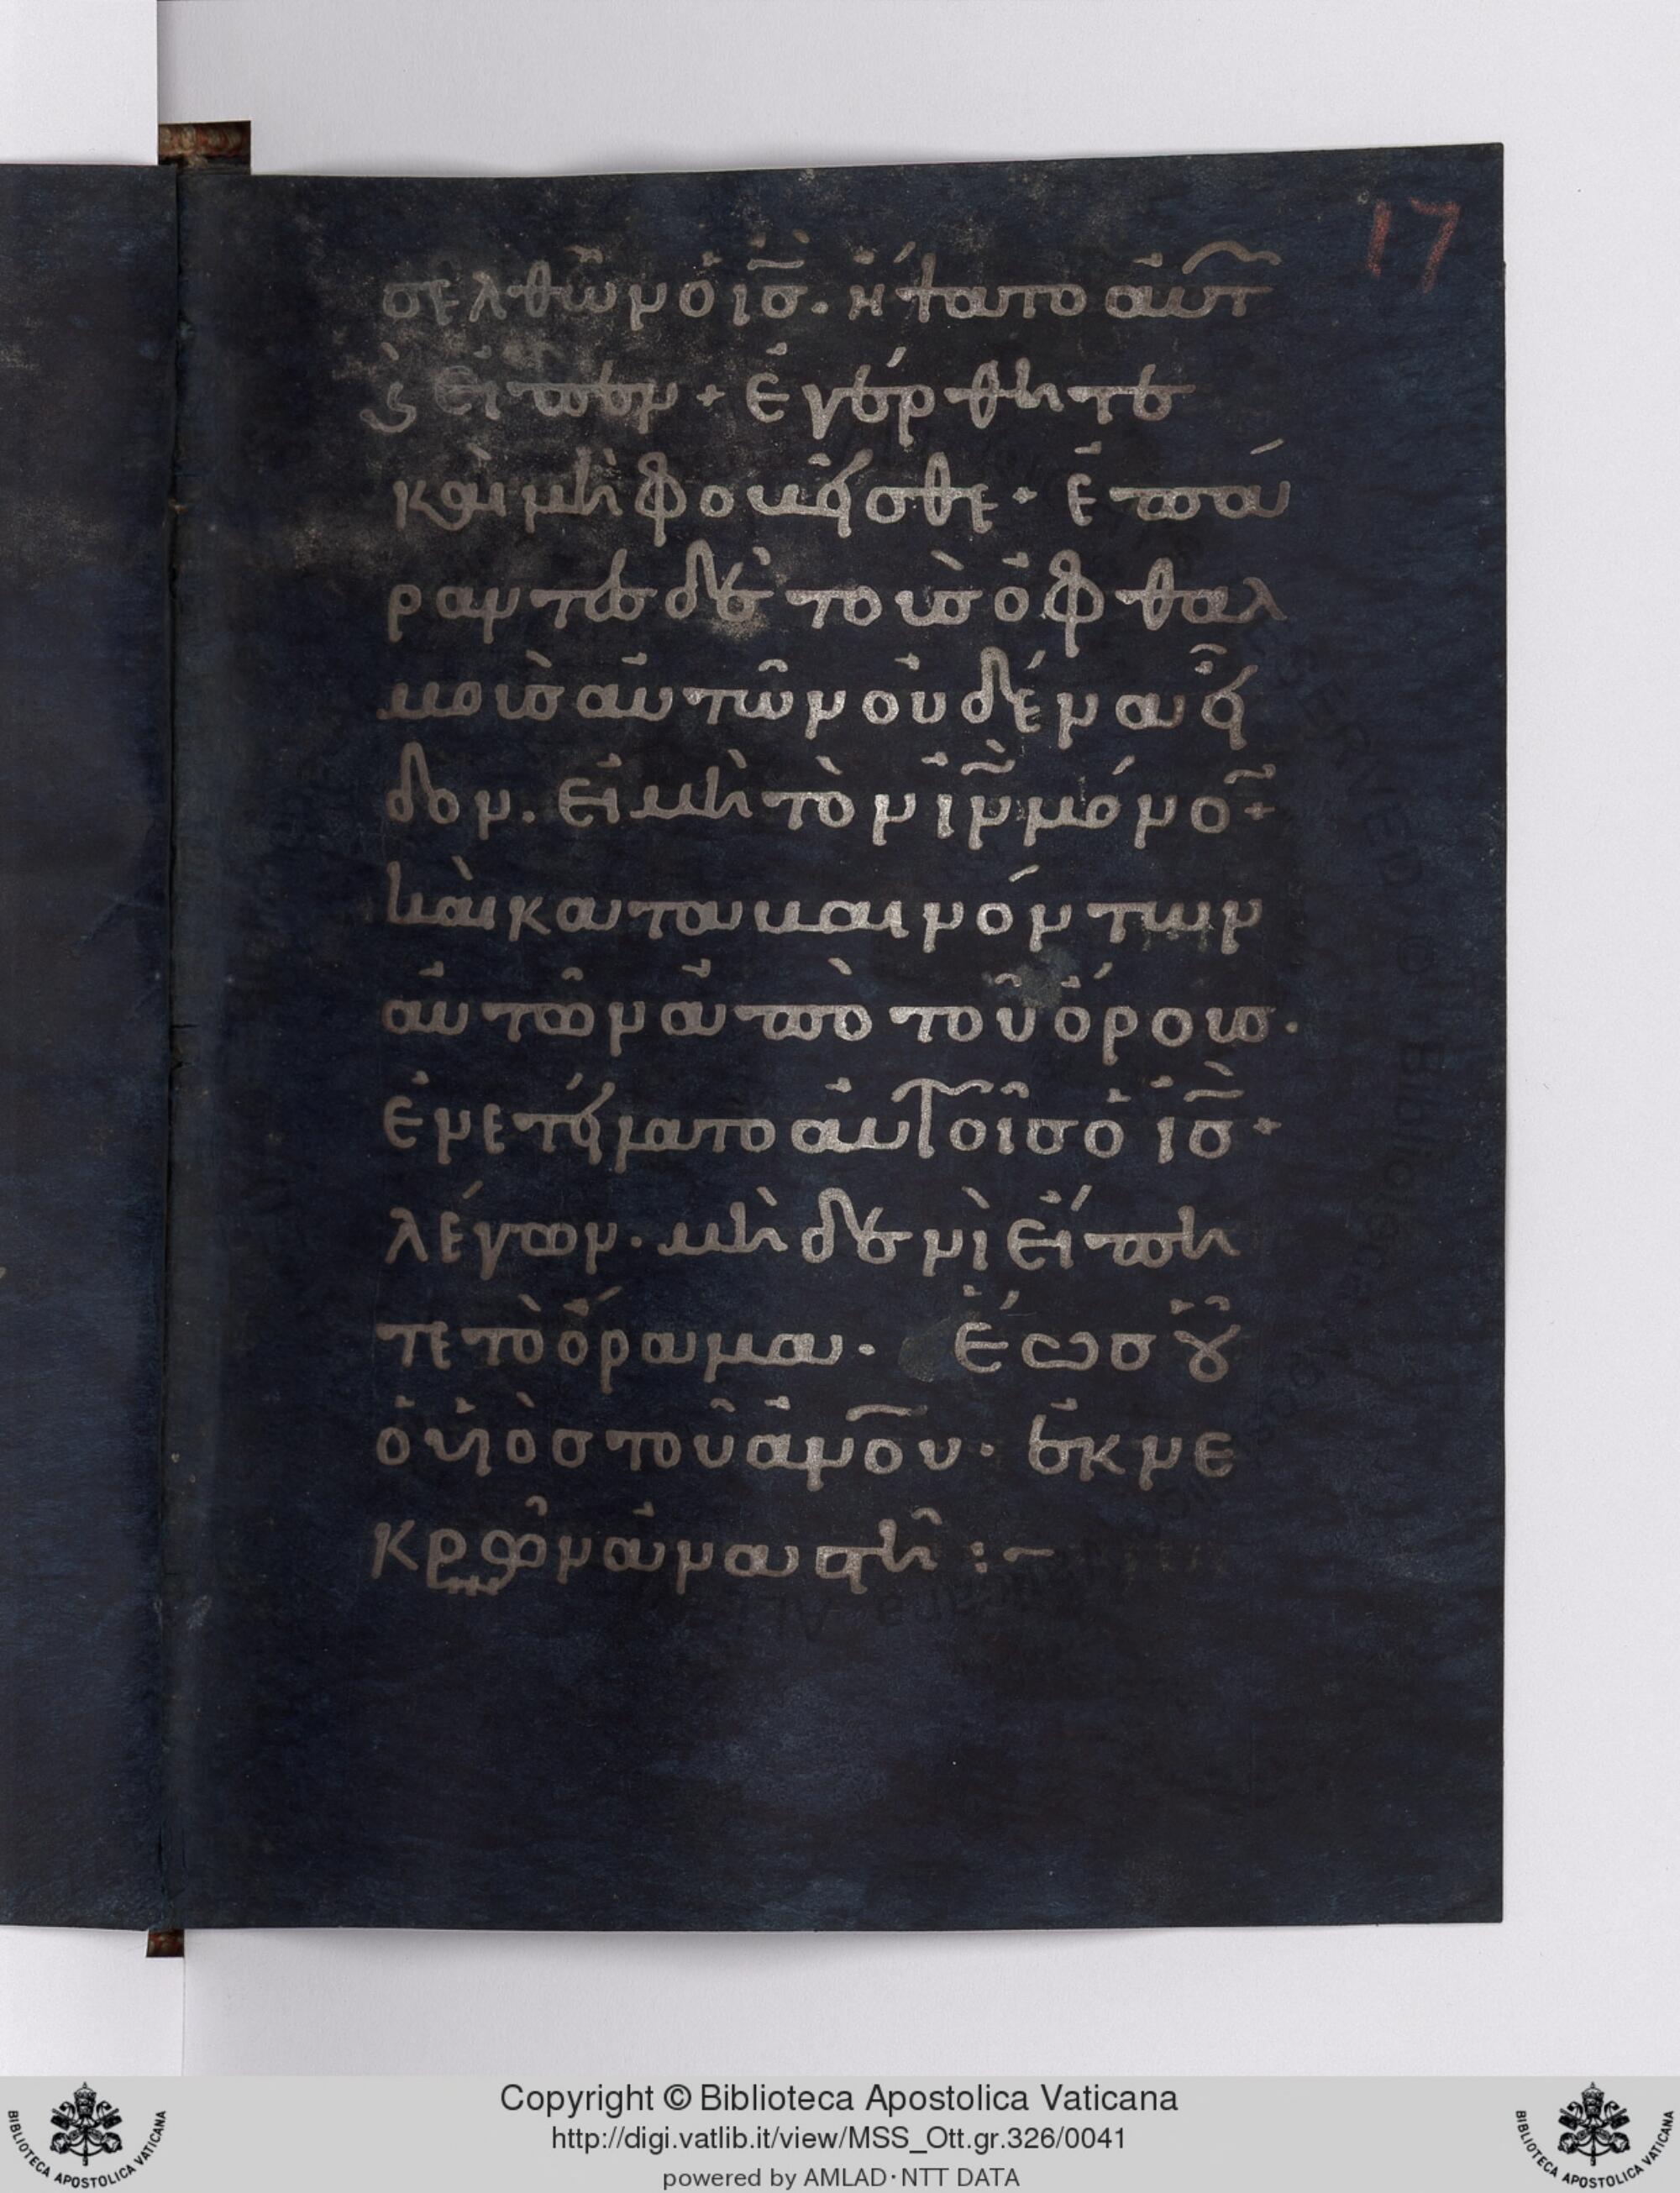 17
σελθὼν ὁ ι̅σ̅. ἥψατο αὐτ
ϗ εἶπεν + ἐγέρθητε
καὶ μὴ φοβῆσθε + ἐπά
ραντεσ δὲ τοὺσ ὀφθαλ
μοὺσ αὐτῶν οὐδένα εἶ
δον. εἰ μὴ τὸν ι̅ν̅ μόνο̅ +
καὶ καταβαινόντων
αὐτῶν ἀπὸ τοῦ ὄρουσ.
ἐνετείλατο αὐτοῖσ ὁ ι̅σ̅ +
λέγων. μὴδενὶ εἴπη
τε τὸ ὅραμα. ἕωσ οὗ
ὁ υἱὸσ τοῦ α̅ν̅ο̅υ̅. ἐκ νε
κρῶν ἀναστῆ :~
Copyright © Biblioteca Apostolica Vaticana
http://digi.vatlib.it/view/MSS_Ott.gr.326/0041
powered by AMLAD·NTT DATA
BIBLIOTECA APOSTOLICA VATICANA
BIBLIOTECA APOSTOLICA VATICANA